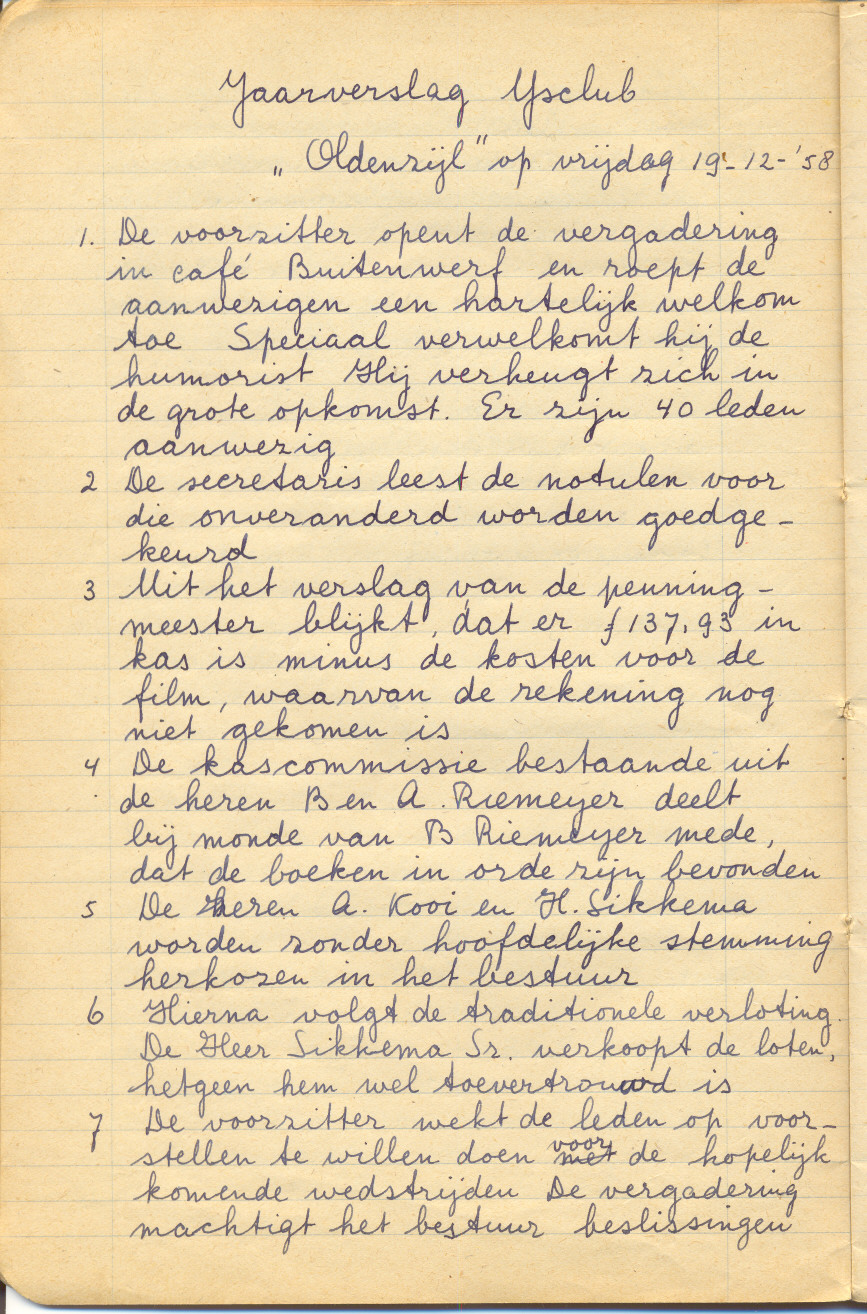 Jaarverslag Ysclub
„Oldenzijl" op vrijdag 19-12-'58
1. De voorzitter opent de vergadering
in café Buitenwerf en roept de
aanwezigen een hartelijk welkom
toe Speciaal verwelkomt hij de
humorist Hij verheugt zich in
de grote opkomst. Er zijn 40 leden
aanwezig
2 De secretaris leest de notulen voor
die onveranderd worden goedge-
keurd
3 Uit het verslag van de penning-
meester blijkt, dat er ƒ137,93 in
kas is minus de kosten voor de
film, waarvan de rekening nog
niet gekomen is
4 De kascommissie bestaande uit
de heren B en A. Riemeyer deelt
bij monde van B Riemeyer mede,
dat de boeken in orde zijn bevonden
5 De heren A. Kooi en H. Sikkema
worden zonder hoofdelijke stemming
herkozen in het bestuur
6 Hierna volgt de traditionele verloting.
De Heer Sikkema Sr. verkoopt de loten,
hetgeen hem wel toevertrouwd is
7 De voorzitter wekt de leden op voor-
stellen te willen doen met voor de hopelijk
komende wedstrijden De vergadering
machtigt het bestuur beslissingen